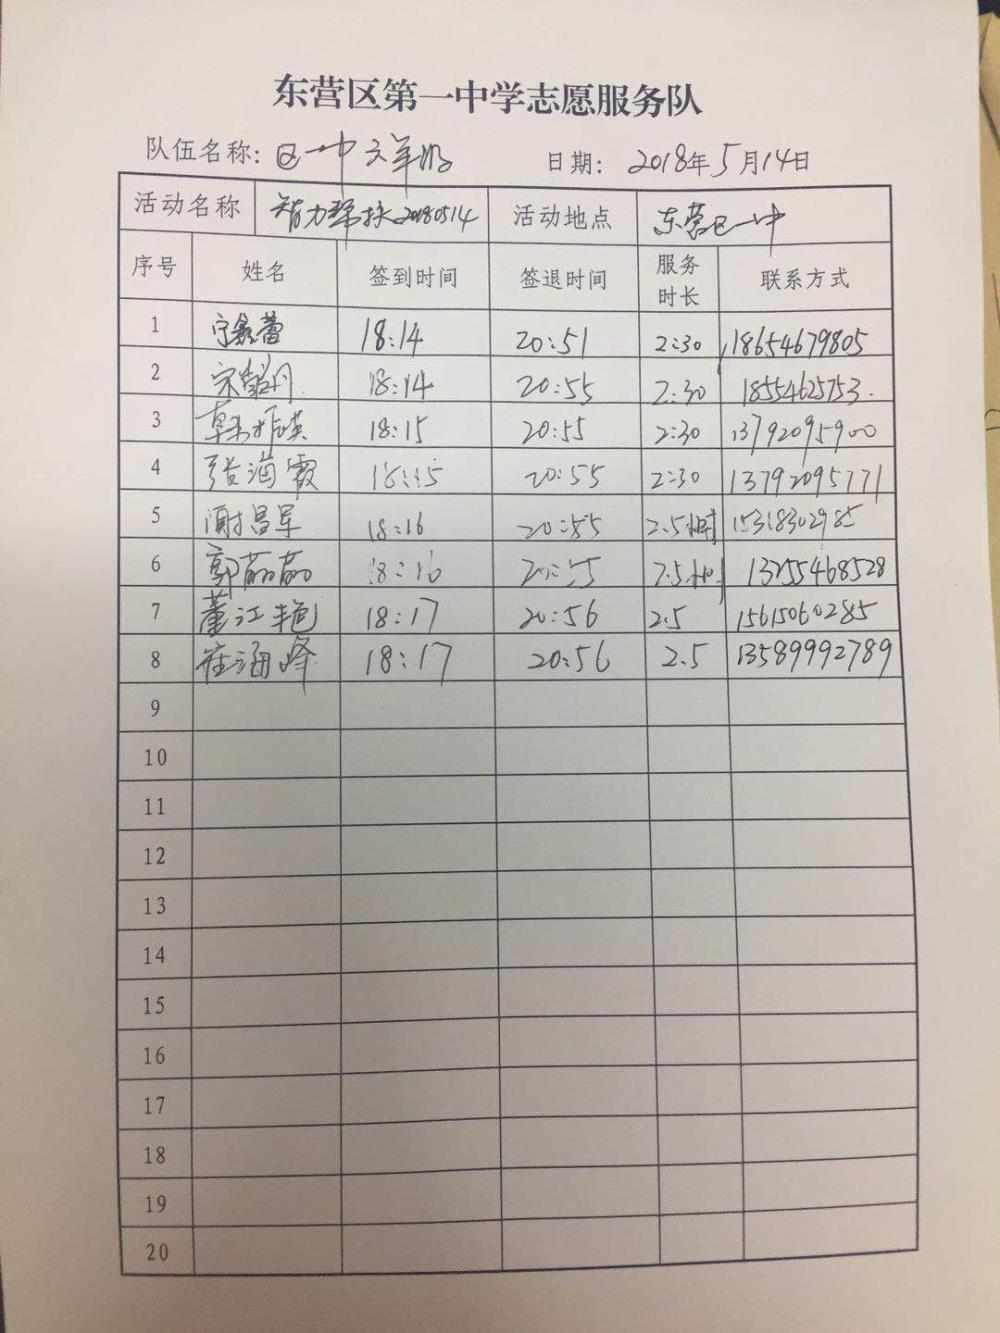 东营区第一中学志愿服务队
队伍名称: 区一中 日期: 2018年5月14日
活动名称 智力帮扶20180514 活动地点 东营区一中
序号 姓名 签到时间 签退时间 服务时长 联系方式
1 宁鑫蕾 18:14 20:51 2:30 18654679805
2 宋 丹 18:14 20:55 2:30 18554625753.
3 韩振英 18:15 20:55 2:30 13792095900
4 张海霞 18:15 20:55 2:30 13792095771
5 昌军 18:16 20:55 2.5小时 15318302985
6 郭茹茹 18:16 20:55 2.5小时 13255468528
7 董江艳 18:17 20:56 2.5 15615060285
8 崔海峰 18:17 20:56 2.5 13589992789
9
10
11
12
13
14
15
16
17
18
19
20